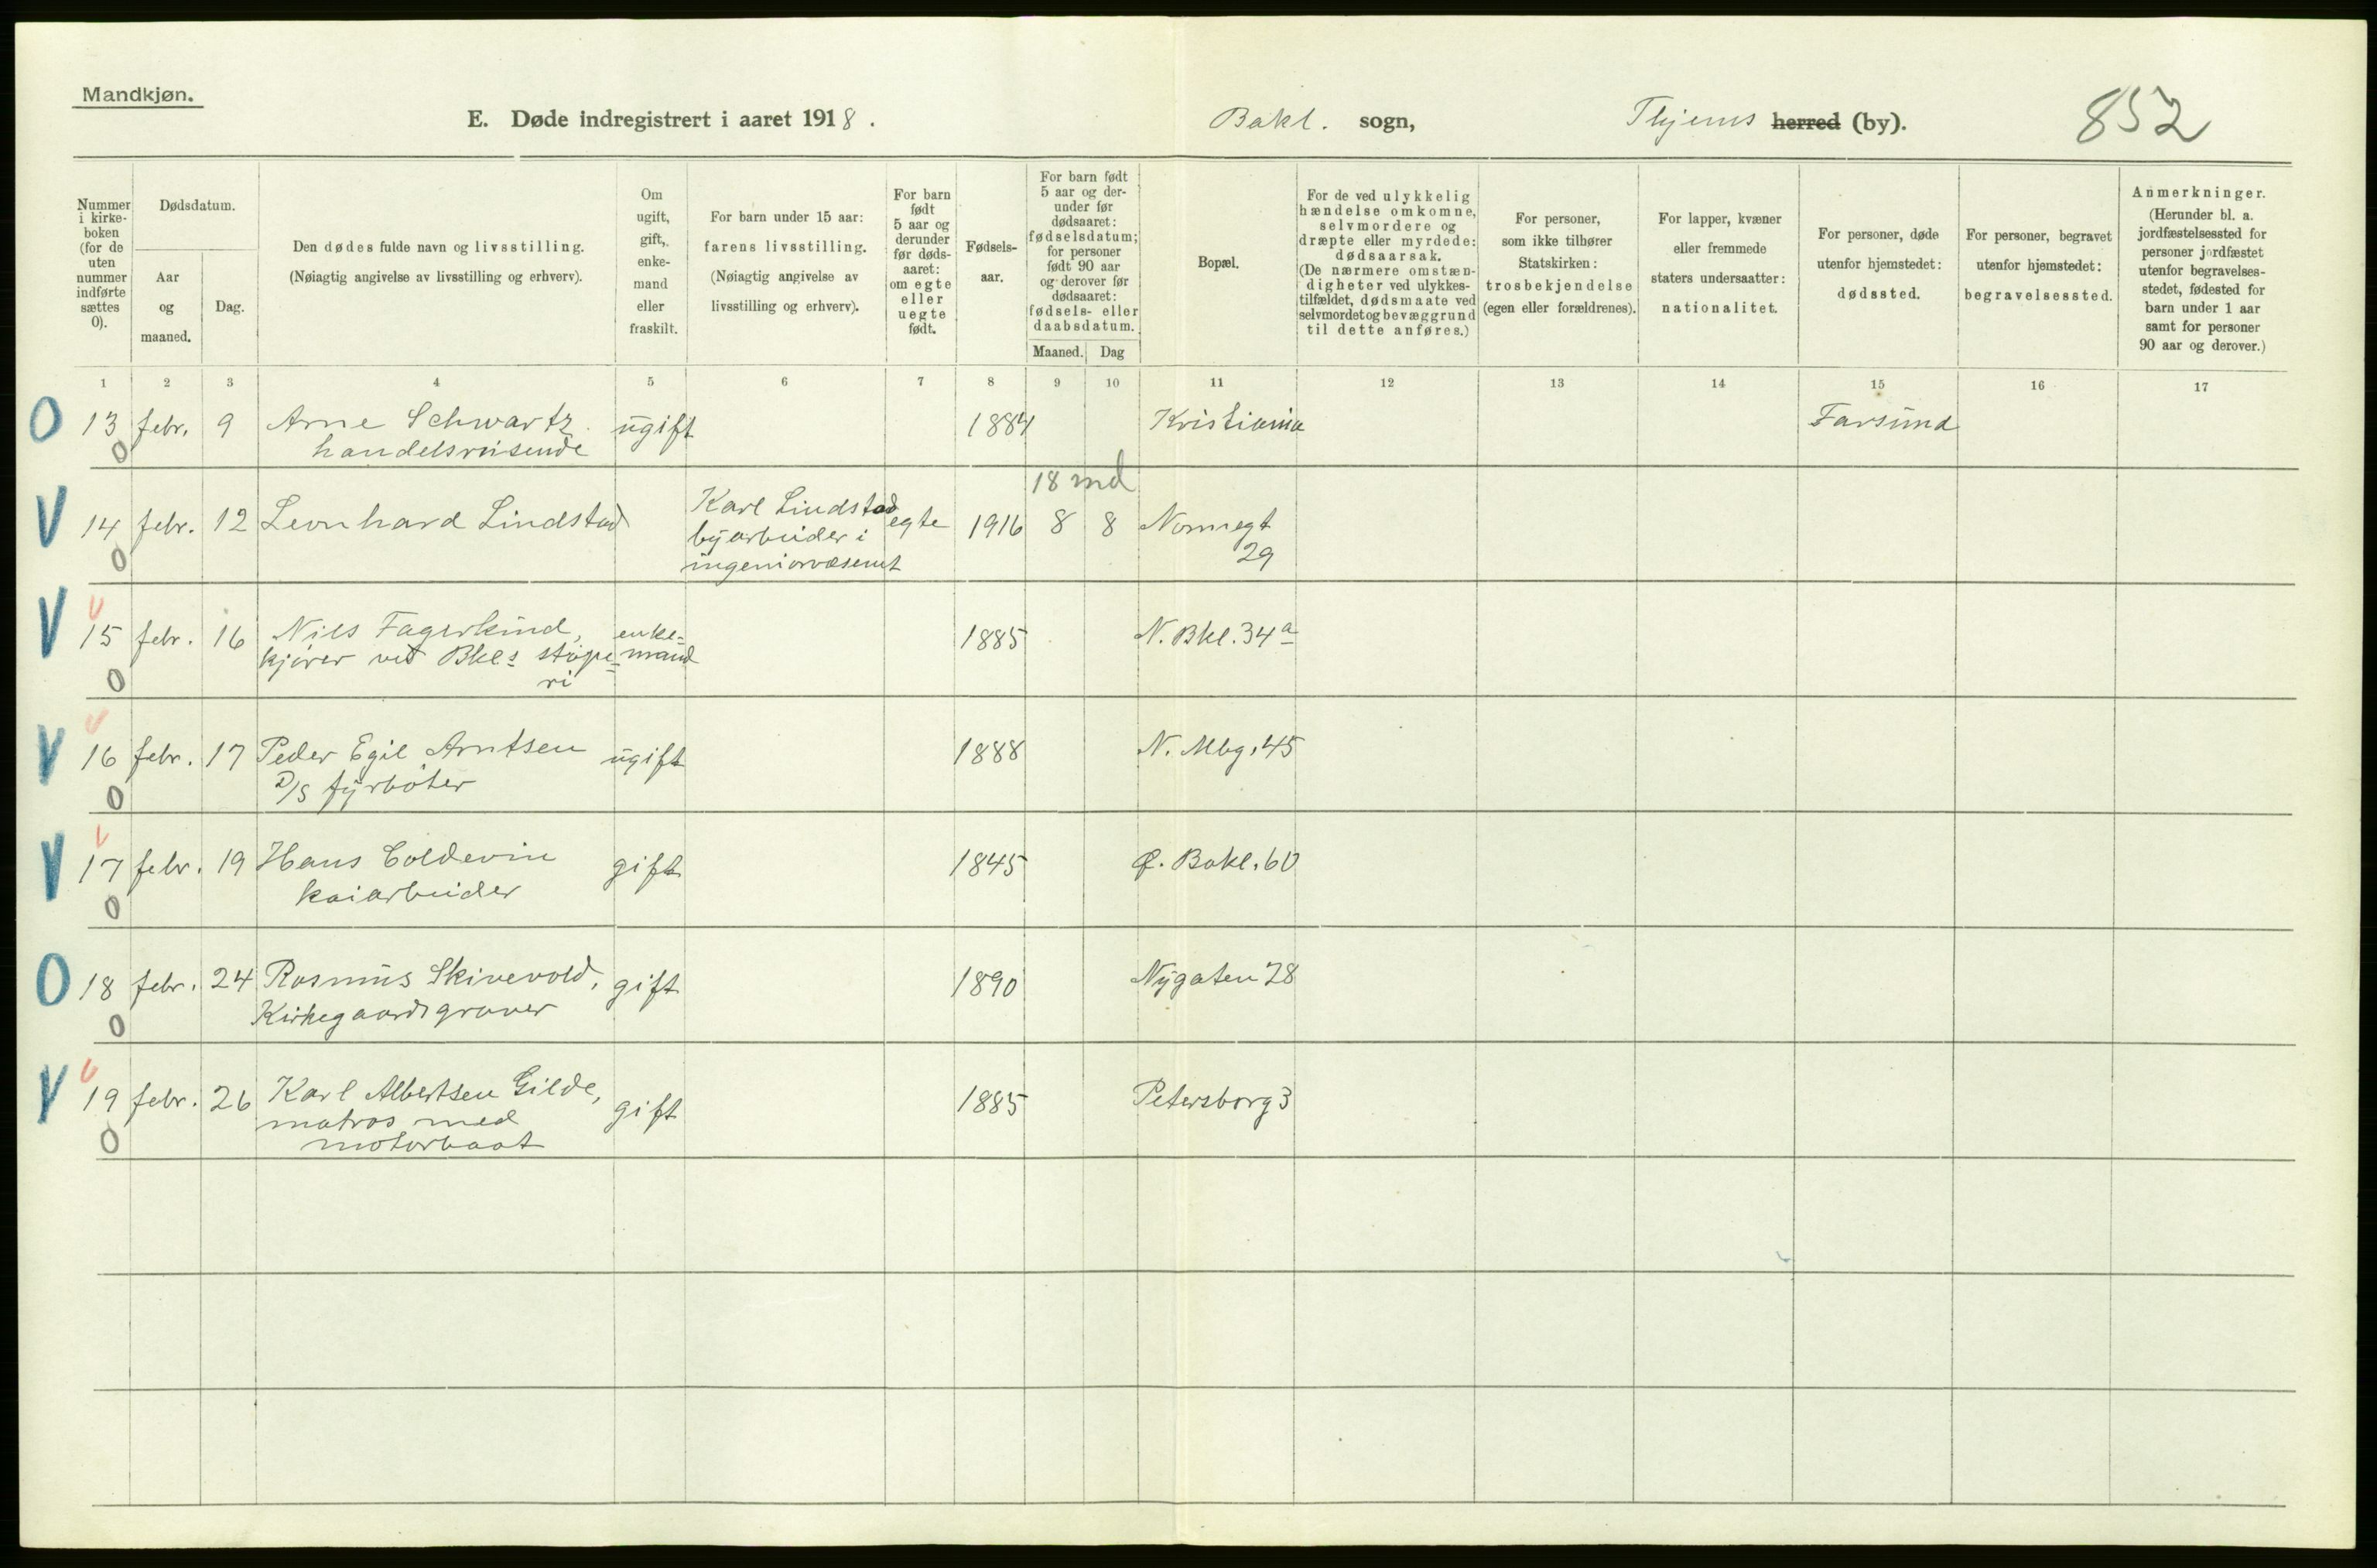 Mandkjøn.
E. Døde indregistrert i aaret 1918.
Bakl. sogn,
Thjems herred (by).
852
Nummer i kirke-boken (for de uten nummer indførte sættes 0).
Dødsdatum.
Aar og maaned.
Dag.
Den dødes fulde navn og livsstilling.
(Nøiagtig angivelse av livsstilling og erhverv).
Om ugift, gift, enke-mand eller fraskilt.
For barn under 15 aar:
farens livsstilling.
(Nøiagtig angivelse av livsstilling og erhverv).
For barn født 5 aar og derunder før døds-aaret: om egte eller uegte født.
Fødsels-aar.
For barn født 5 aar og der-under før dødsaaret: fødselsdatum; for personer født 90 aar og derover før dødsaaret: fødsels- eller daabsdatum.
Maaned.
Dag
Bopæl.
For de ved ulykkelig hændelse omkomne, selvmordere og dræpte eller myrdede: dødsaarsak.
(De nærmere omstæn-digheter ved ulykkes-tilfældet, dødsmaate ved selvmordet og bevæggrund til dette anføres.)
For personer, som ikke tilhører Statskirken: trosbekjendelse (egen eller forældrenes).
For lapper, kvæner eller fremmede staters undersaatter: nationalitet.
For personer, døde utenfor hjemstedet: dødssted.
For personer, begravet utenfor hjemstedet: begravelsessted.
Anmerkninger.
(Herunder bl. a. jordfæstelsessted for personer jordfæstet utenfor begravelses-stedet, fødested for barn under 1 aar samt for personer 90 aar og derover.)
1 2 3 4 5 6 7 8 9 10 11 12 13 14 15 16 17
O 13 febr. 9 Arne Schwartz ugift 1884 Kristiania Farsund
0 handelsreisende
18 md
V 14 febr. 12 Leonhard Lindstad Karl Lindstad egte 1916 8 8 Nonnegt
byarbeider i
0 ingeniørvæsenet 29
V 15 febr. 16 Nils Fagerlund, enke- 1885 N. Bkl. 34 a
kjører ved Bkls støpe- mand
0 ri
V 16 febr. 17 Peder Egil Arntsen ugift 1888 N. Mbg. 45
0 D/S fyrbøter
V 17 febr. 19 Hans Coldevin gift 1845 Ø. Bakl. 60
0 kaiarbeider
O 18 febr. 24 Rasmus Skinevold, gift 1890 Nygaten 28
0 Kirkegaardsgraver
V 19 febr. 26 Karl Albertsen Gilde, gift 1885 Petersborg 3
matros med
0 motorbaat